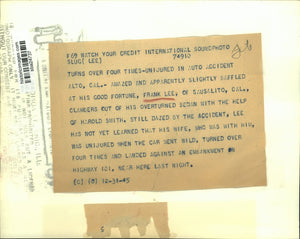 F69 WATCH YOUR CREDIT INTERNATIONAL SOUNDPHOTO
SLUG( LEE) 74910
TURNS OVER FOUR TIMES-UNIJURED IN AUTO ACCIDENT
ALTO, CAL.- AMAZED AND APPARENTLY SLIGHTLY BAFFLED
AT HIS GOOD FORTUNE, FRANK LEE, OF SAUSALITO, CAL.,
CLAMBERS OUT OF HIS OVERTURNED SEDAN WITH THE HELP
OF HAROLD SMITH. STILL DAZED BY THE ACCIDENT, LEE
HAS NOT YET LEARNED THAT HIS WIFE, WHO WAS WITH HIM,
WAS UNINJURED WHEN THE CAR WENT WILD, TURNED OVER
FOUR TIMES AND LANDED AGAINST AN EMBANKMENT ON
HIGHWAY 101, NEAR HERE LAST NIGHT.
(C) (B) 12-31-45